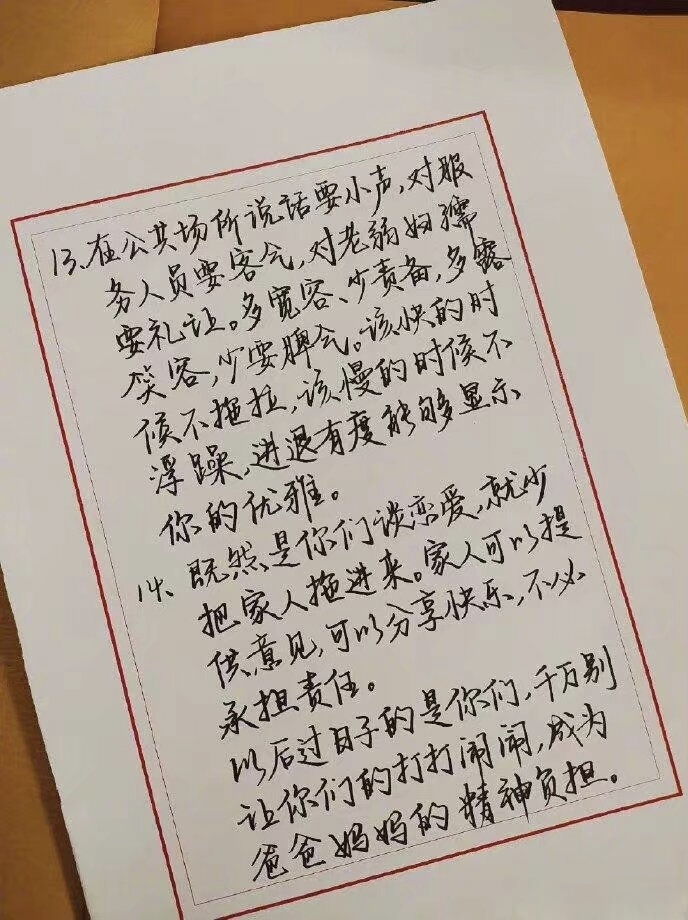 13、在公共场所说话要小声，对服
务人员要客气，对老弱妇孺
要礼让。多宽容、少责备，多露
笑容，少耍脾气。该快的时
候不拖拉，该慢的时候不
浮躁，进退有度能够显示
你的优雅。
14、既然是你们谈恋爱，就少
把家人拖进来。家人可以提
供意见，可以分享快乐，不必
承担责任。
以后过日子的是你们，千万别
让你们的打打闹闹，成为
爸爸妈妈的精神负担。